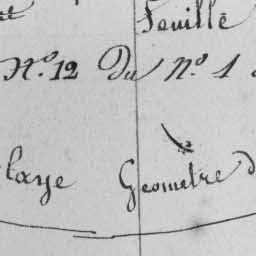 Feuille
N.º 12 Du N.º 1
laye Geomètre d